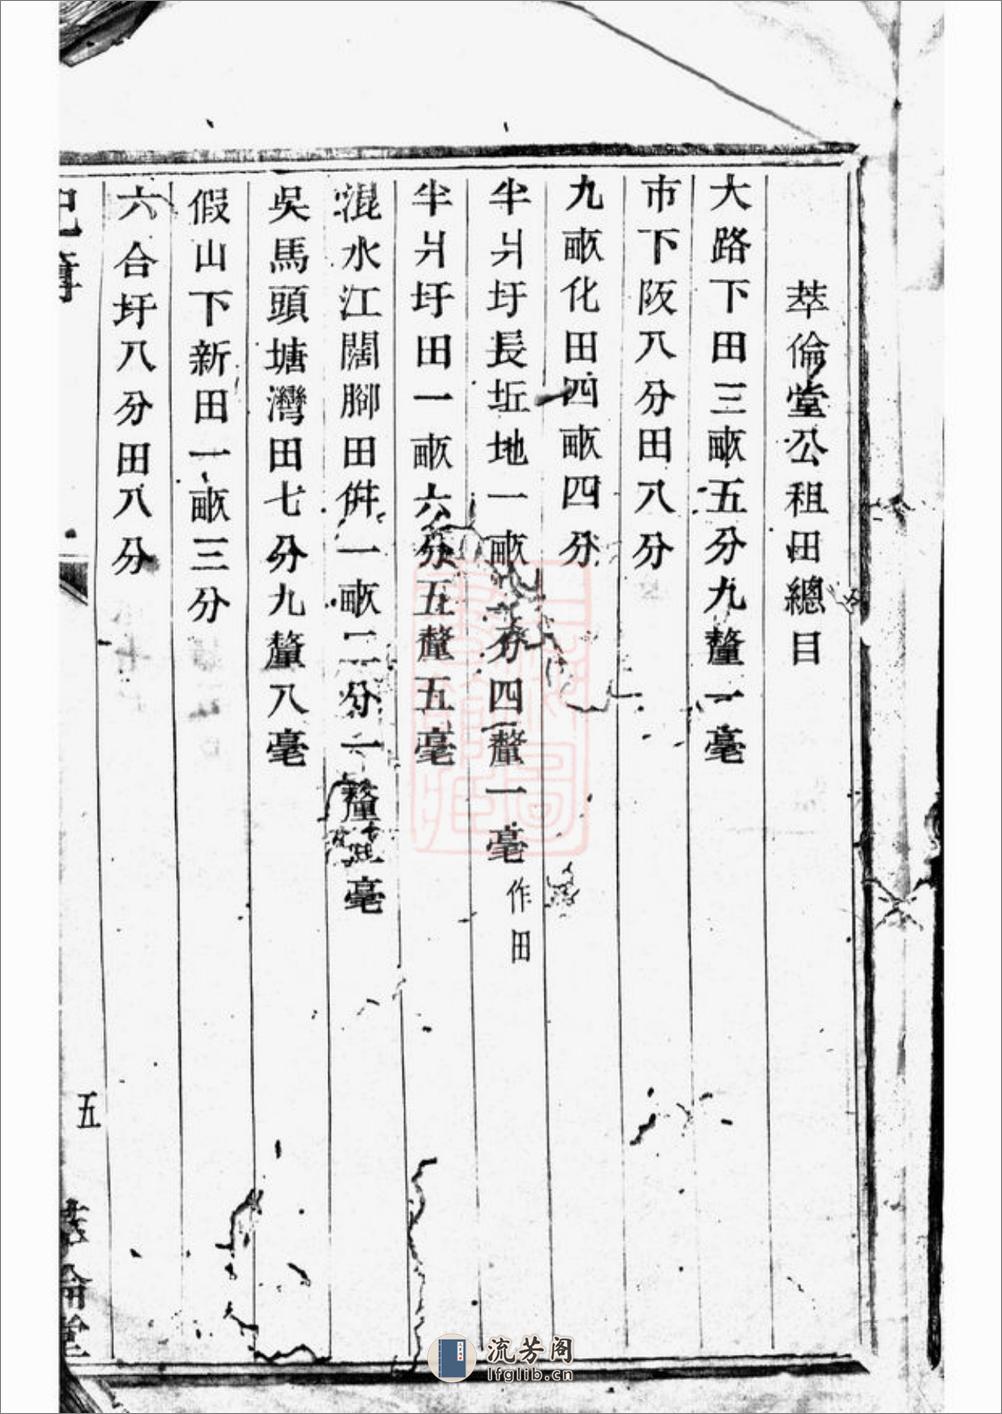 萃倫堂公租田總目
大路下田三畝五分九釐一毫
市下阪八分田八分
九畝化田四畝四分
半爿圩長坵地一畝 分四釐一毫 作田
半爿圩田一畝六分五釐五毫
混水江闊腳田併一畝二分一釐 毫
吳馬頭塘灣田七分九釐八毫
假山下新田一畝三分
六合圩八分田八分
五
萃倫堂
流芳阁
lfglib.cn